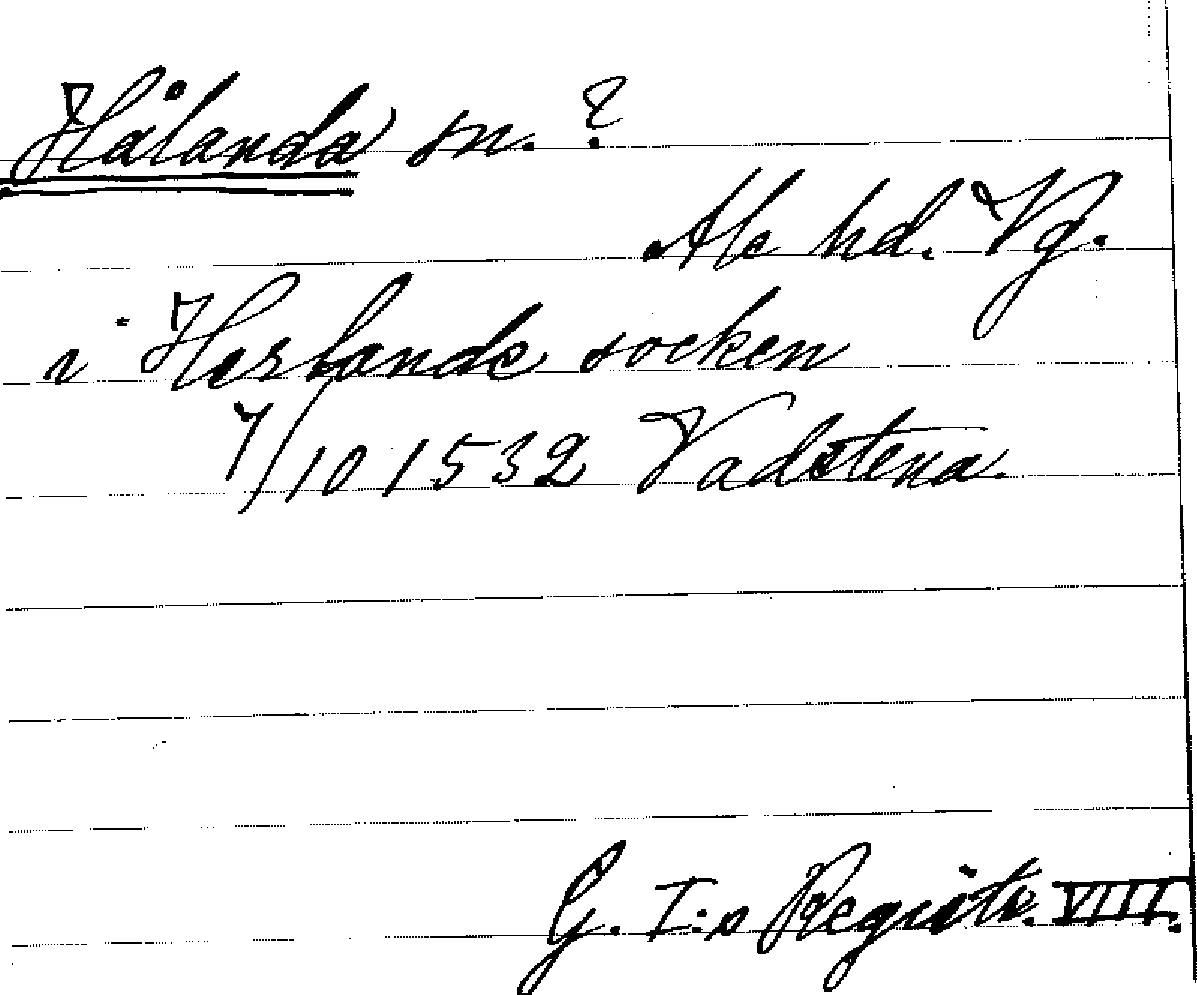 Hålanda sn. ?
Ale hd. Vg.
i Herlande socken
7/10 1532 Vadstena
G. I:s Registr. VIII.